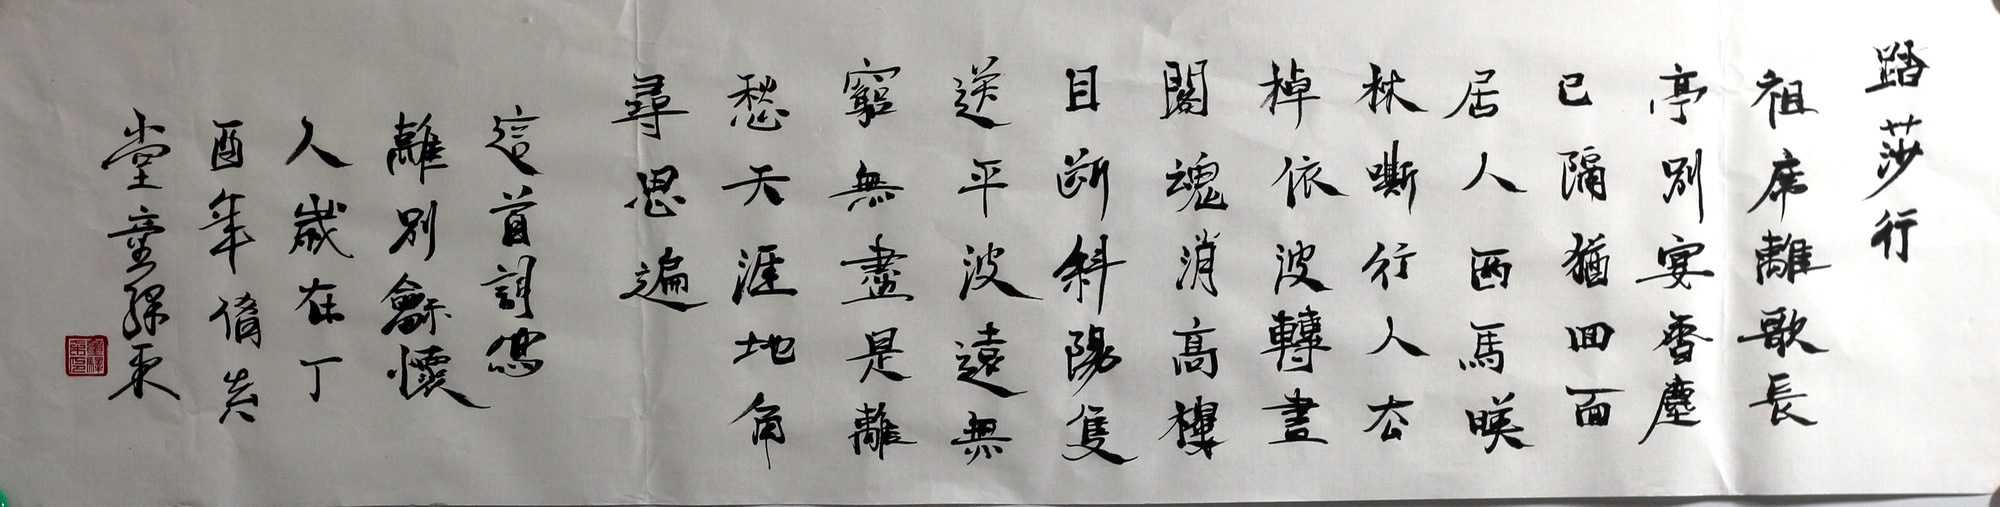 踏莎行
祖席離歌長
亭別宴香塵
已隔猶回面
居人西馬映
林嘶行人去
棹依波轉畫
閣魂消高樓
目断斜陽隻
送平波遠無
窮無盡是離
愁天涯地角
尋思遍
這首詞寫
離別龢懷
人歲在丁
酉年脩
堂童